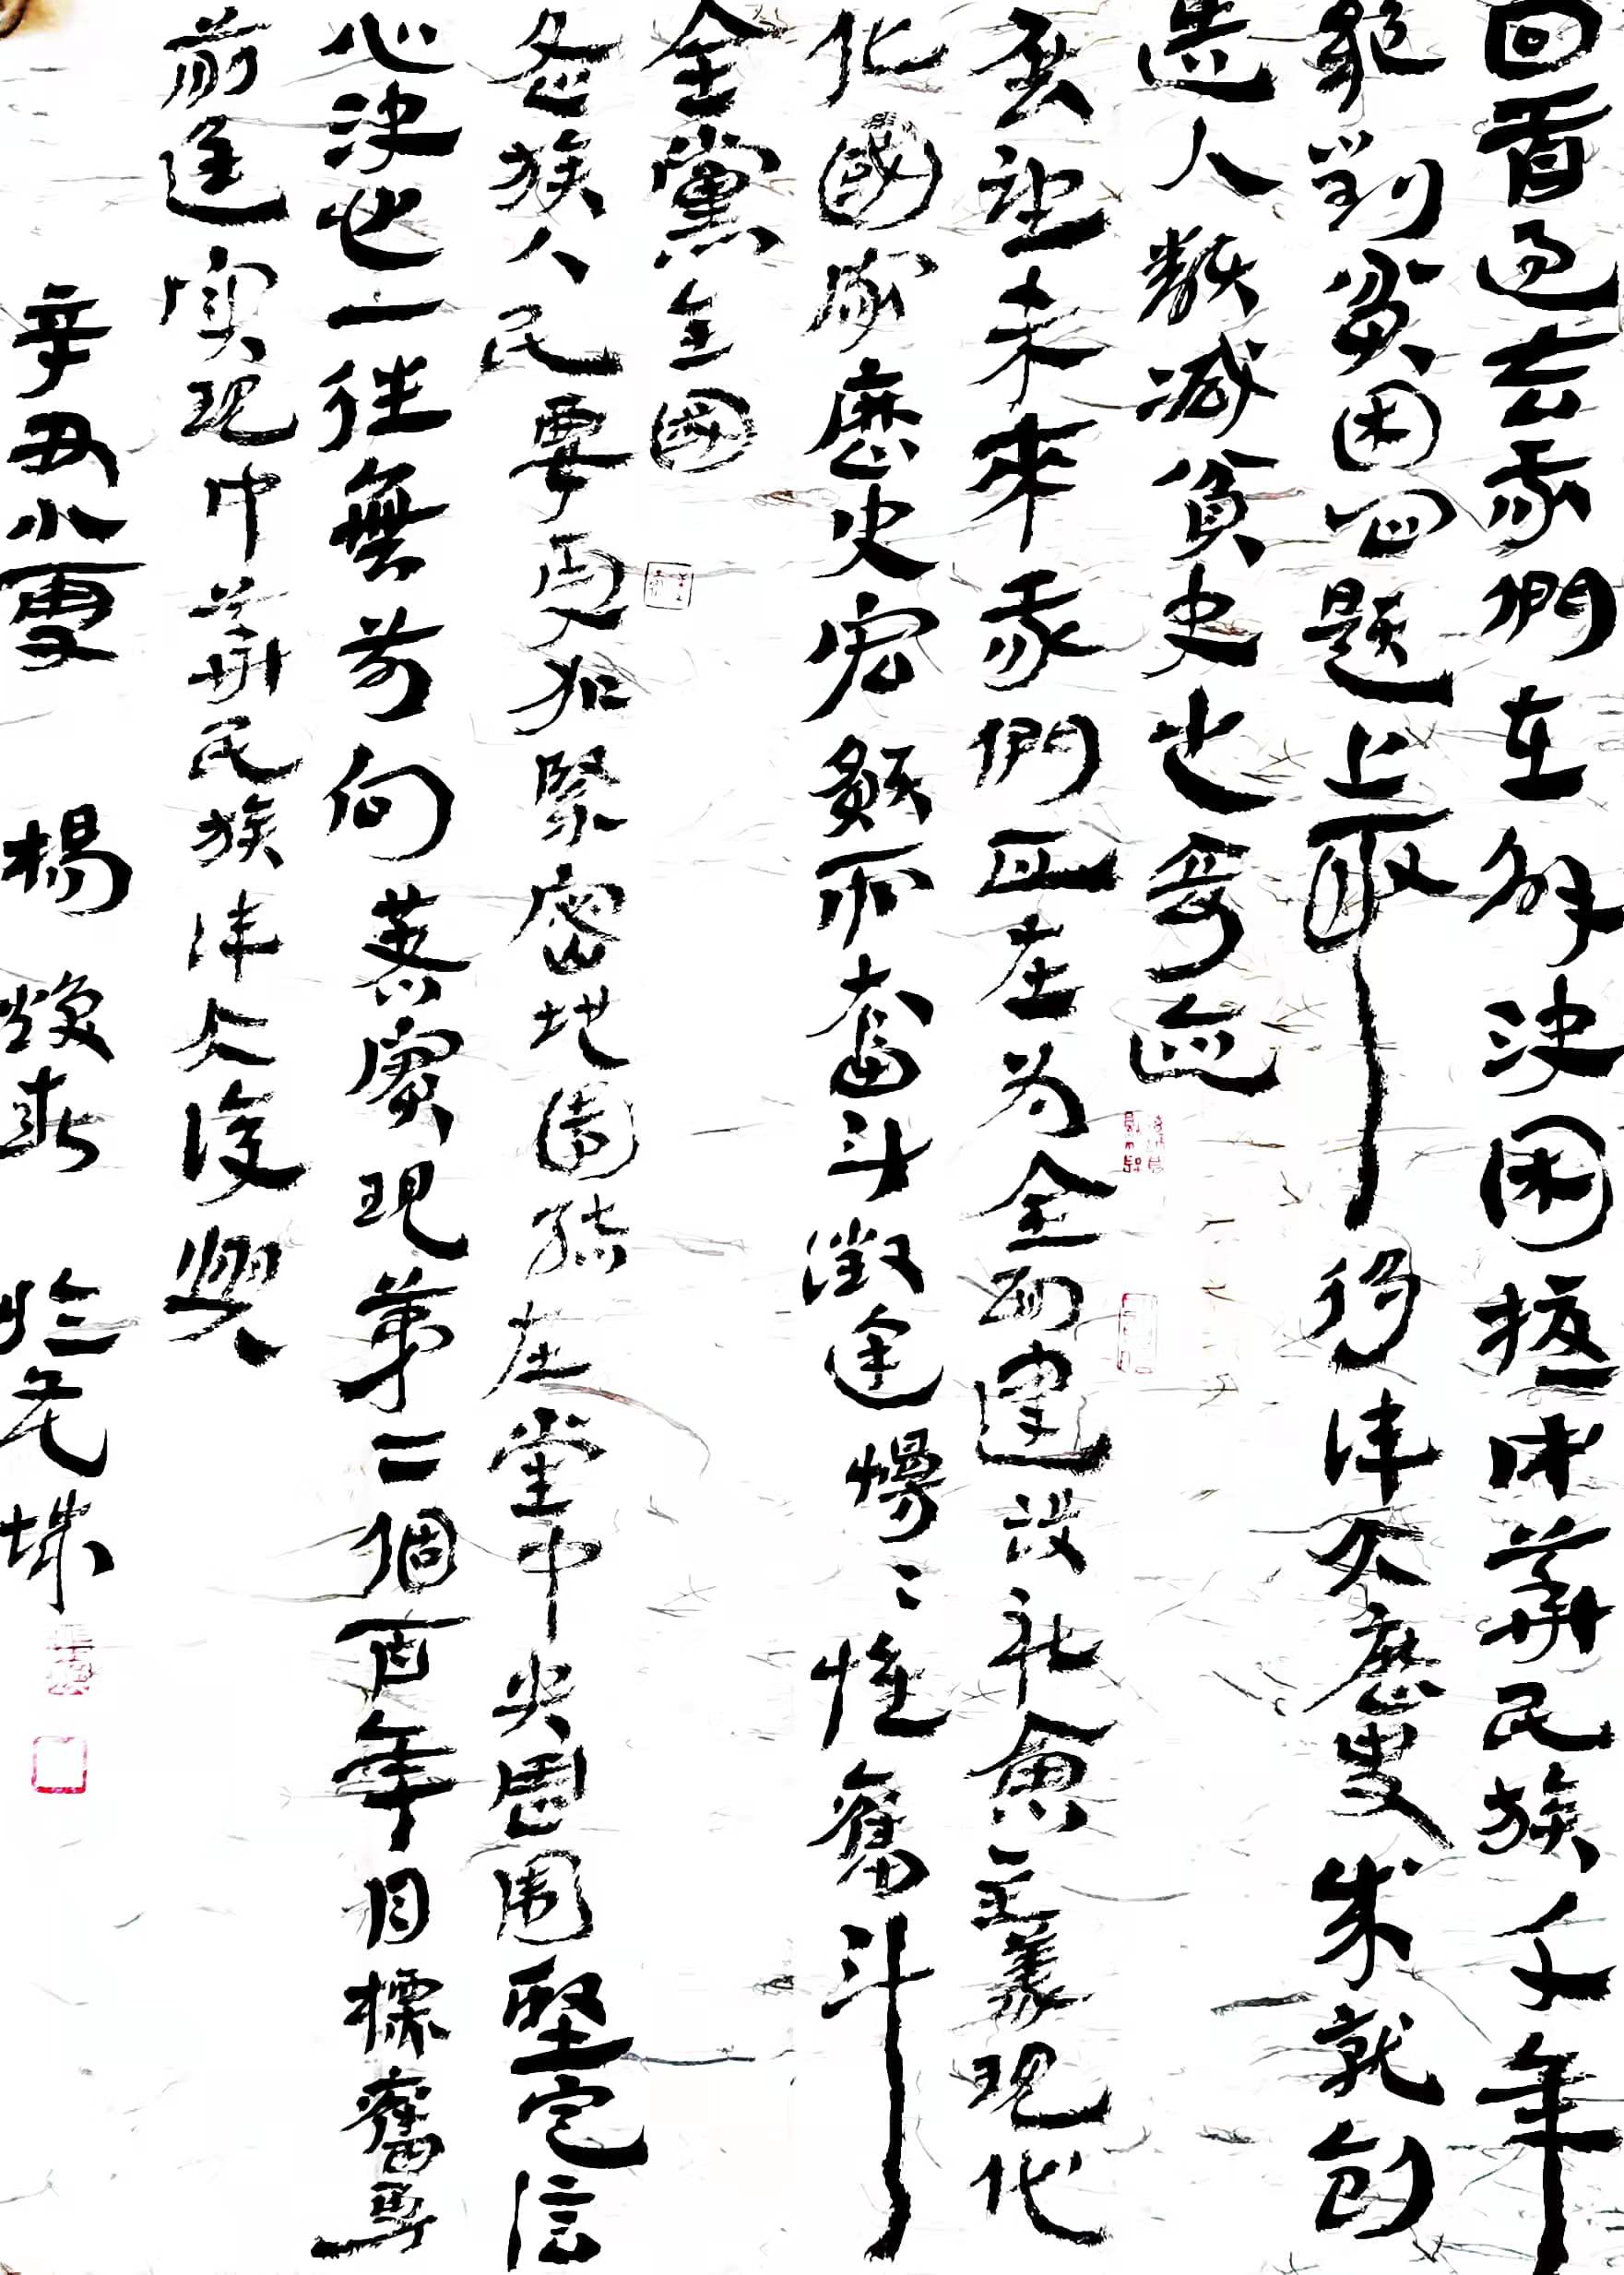 回首過去我們在解决困擾中華民族千年
絕對貧困问题上取得偉大歷史成就創
造人類减貧史上奇迹
展望未來我們正在为全面建設社會主義現代
化國家歷史宏願而奮斗征途慢〻惟奮斗
全黨全國
各族人民要更加緊密地團結在黨中央周围堅定信
心决心一往無前向着實現第二個百年目標奮勇
前進實現中華民族偉大復興
辛丑小雪 楊 焕 於